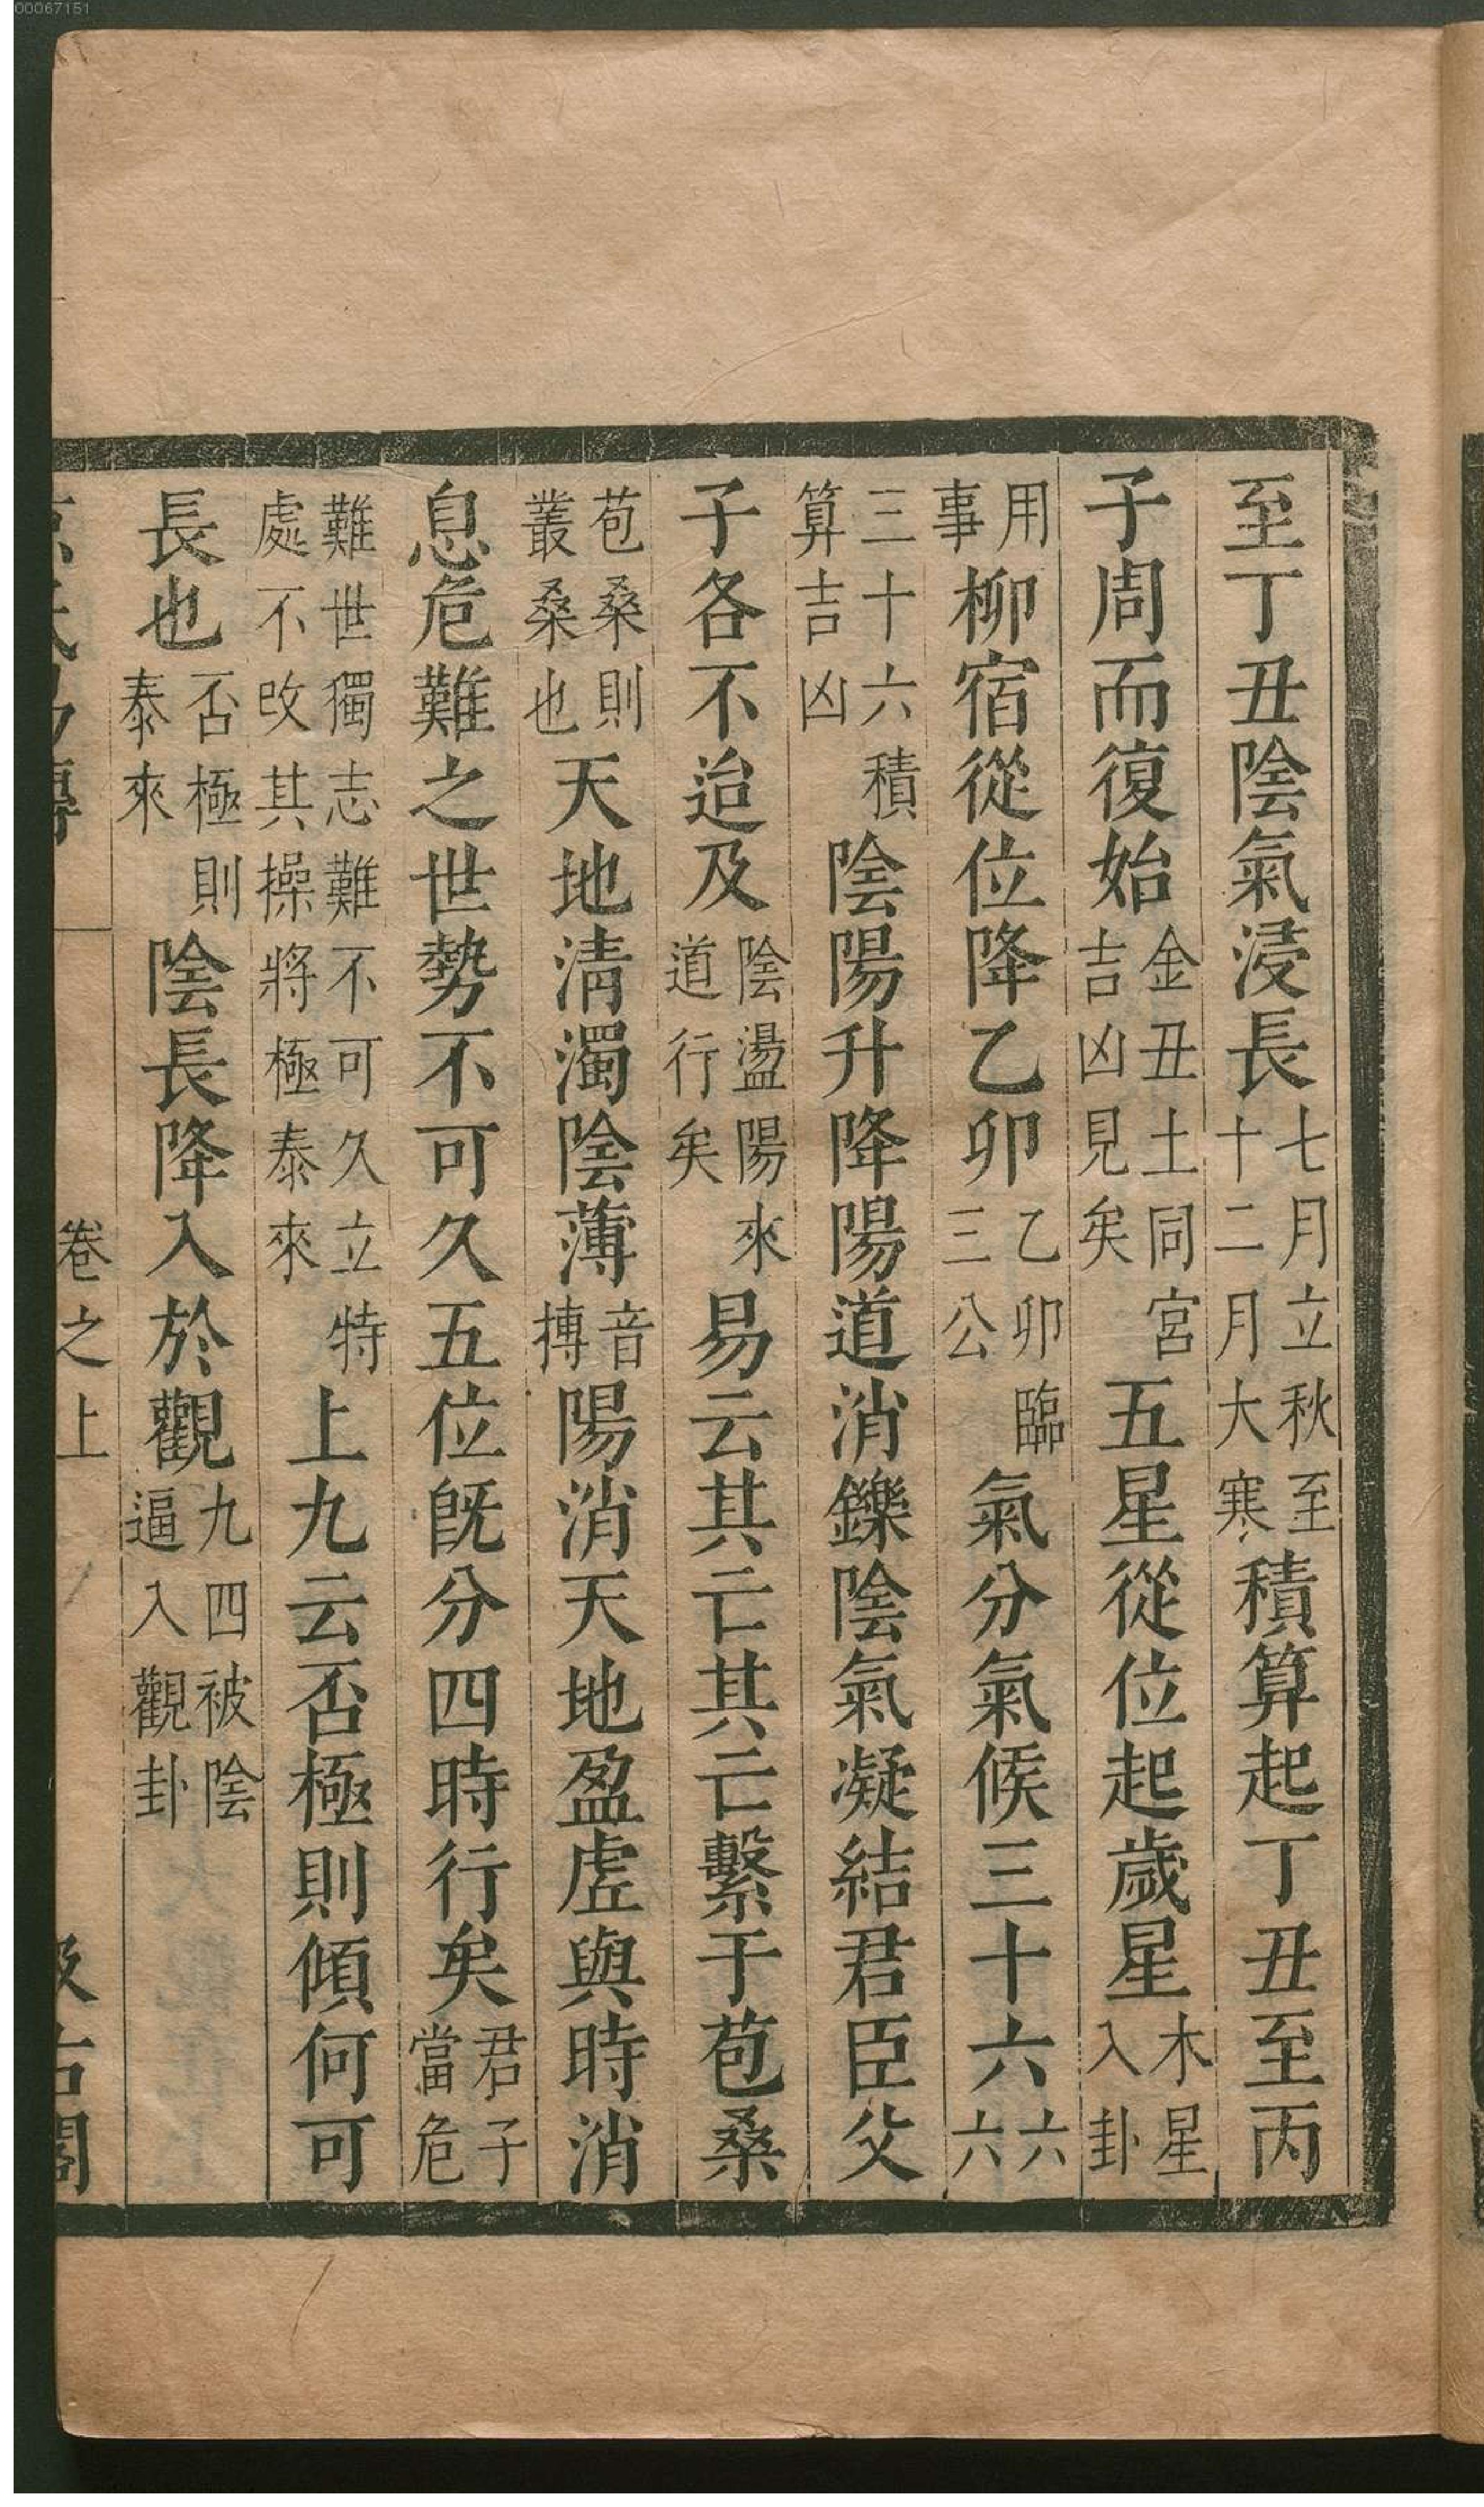 00067151
至丁丑陰氣浸長七月立秋至十二月大寒積算起丁丑至丙
子周而復始金丑土同宮吉凶見矣五星從位起歲星木星入卦
用事柳宿從位降乙卯乙卯臨三公氣分氣候三十六六六
三十六積算吉凶陰陽升降陽道消鑠陰氣凝結君臣父
子各不迨及陰盪陽來道行矣易云其亡其亡繫于苞桑
苞桑則叢桑也天地清濁陰薄音搏陽消天地盈虛與時消
息危難之世勢不可久五位旣分四時行矣君子當危
難世獨志難不可久立特處不改其操將極泰來上九云否極則傾何可
長也否極則泰來陰長降入於觀九四被陰逼入觀卦
卷之上